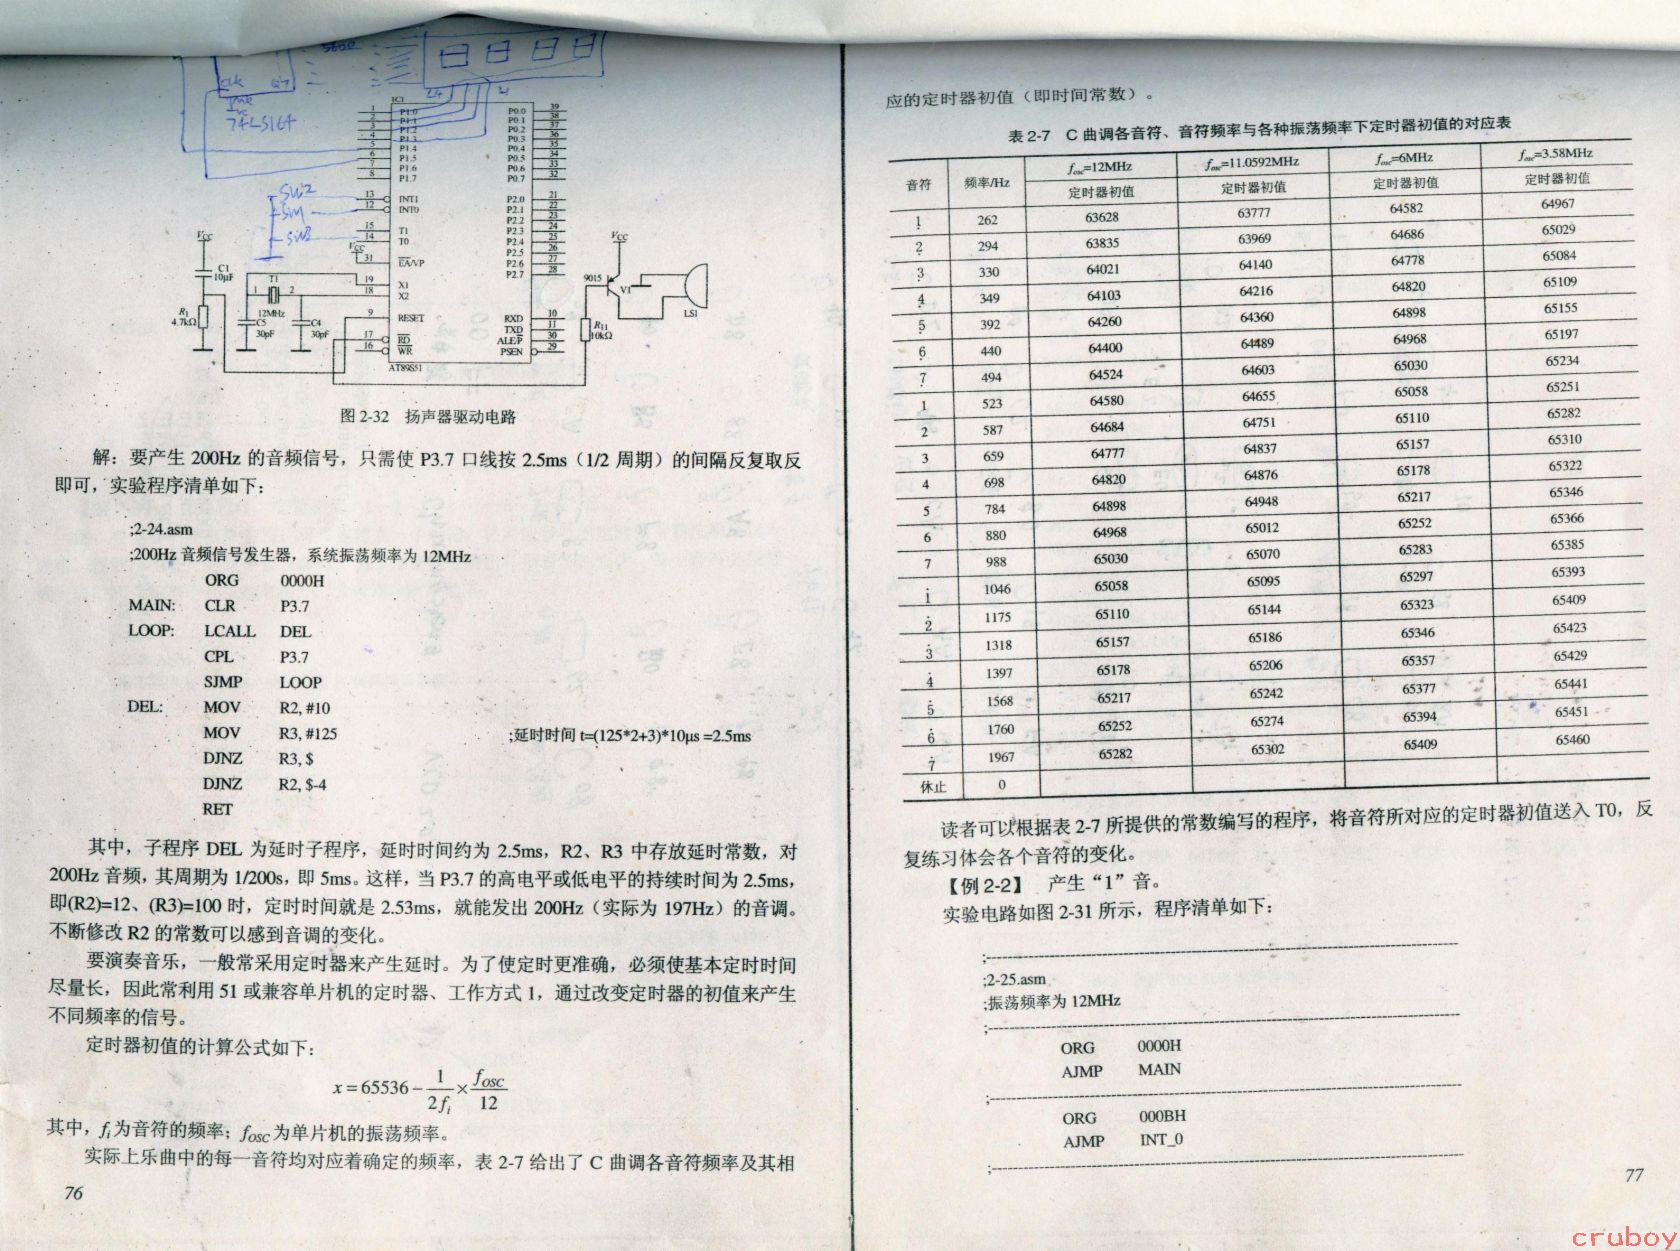 560Ω
CLK Q7
74LS164
24
21
SW2
SW1
SW3
IC1
1 P1.0 P0.0 39
2 P1.1 P0.1 38
3 P1.2 P0.2 37
4 P1.3 P0.3 36
5 P1.4 P0.4 35
6 P1.5 P0.5 34
7 P1.6 P0.6 33
8 P1.7 P0.7 32
13 INT1 P2.0 21
12 INT0 P2.1 22
P2.2 23
15 T1 P2.3 24
14 T0 P2.4 25
P2.5 26
31 EA/VP P2.6 27
P2.7 28
19 X1
18 X2
9 RESET RXD 10
TXD 11
17 RD ALE/P 30
16 WR PSEN 29
AT89S51
Vcc
C1
10μF
R1
4.7kΩ
T1
1 2
12MHz
C5
30pF
C4
30pF
Vcc
Vcc
9015
V1
R11
10kΩ
LS1
图 2-32 扬声器驱动电路
解：要产生 200Hz 的音频信号，只需使 P3.7 口线按 2.5ms（1/2 周期）的间隔反复取反
即可，实验程序清单如下：
;2-24.asm
;200Hz 音频信号发生器，系统振荡频率为 12MHz
ORG 0000H
MAIN: CLR P3.7
LOOP: LCALL DEL
CPL P3.7
SJMP LOOP
DEL: MOV R2, #10
MOV R3, #125 ;延时时间 t=(125*2+3)*10μs =2.5ms
DJNZ R3, $
DJNZ R2, $-4
RET
其中，子程序 DEL 为延时子程序，延时时间约为 2.5ms，R2、R3 中存放延时常数，对
200Hz 音频，其周期为 1/200s，即 5ms。这样，当 P3.7 的高电平或低电平的持续时间为 2.5ms，
即(R2)=12、(R3)=100 时，定时时间就是 2.53ms，就能发出 200Hz（实际为 197Hz）的音调。
不断修改 R2 的常数可以感到音调的变化。
要演奏音乐，一般常采用定时器来产生延时。为了使定时更准确，必须使基本定时时间
尽量长，因此常利用 51 或兼容单片机的定时器、工作方式 1，通过改变定时器的初值来产生
不同频率的信号。
定时器初值的计算公式如下：
x = 65536 − 1/2fi × fOSC/12
其中，fi为音符的频率；fOSC为单片机的振荡频率。
实际上乐曲中的每一音符均对应着确定的频率，表 2-7 给出了 C 曲调各音符频率及其相
76
应的定时器初值（即时间常数）。
表 2-7 C 曲调各音符、音符频率与各种振荡频率下定时器初值的对应表
音符 频率/Hz fosc=12MHz fosc=11.0592MHz fosc=6MHz fosc=3.58MHz
定时器初值 定时器初值 定时器初值 定时器初值
1̣ 262 63628 63777 64582 64967
2̣ 294 63835 63969 64686 65029
3̣ 330 64021 64140 64778 65084
4̣ 349 64103 64216 64820 65109
5̣ 392 64260 64360 64898 65155
6̣ 440 64400 64489 64968 65197
7̣ 494 64524 64603 65030 65234
1 523 64580 64655 65058 65251
2 587 64684 64751 65110 65282
3 659 64777 64837 65157 65310
4 698 64820 64876 65178 65322
5 784 64898 64948 65217 65346
6 880 64968 65012 65252 65366
7 988 65030 65070 65283 65385
1̇ 1046 65058 65095 65297 65393
2̇ 1175 65110 65144 65323 65409
3̇ 1318 65157 65186 65346 65423
4̇ 1397 65178 65206 65357 65429
5̇ 1568 65217 65242 65377 65441
6̇ 1760 65252 65274 65394 65451
7̇ 1967 65282 65302 65409 65460
休止 0
读者可以根据表 2-7 所提供的常数编写的程序，将音符所对应的定时器初值送入 T0，反
复练习体会各个音符的变化。
【例 2-2】 产生“1”音。
实验电路如图 2-31 所示，程序清单如下：
;--------------------
;2-25.asm
;振荡频率为 12MHz
;--------------------
ORG 0000H
AJMP MAIN
;--------------------
ORG 000BH
AJMP INT_0
;--------------------
77
cruboy